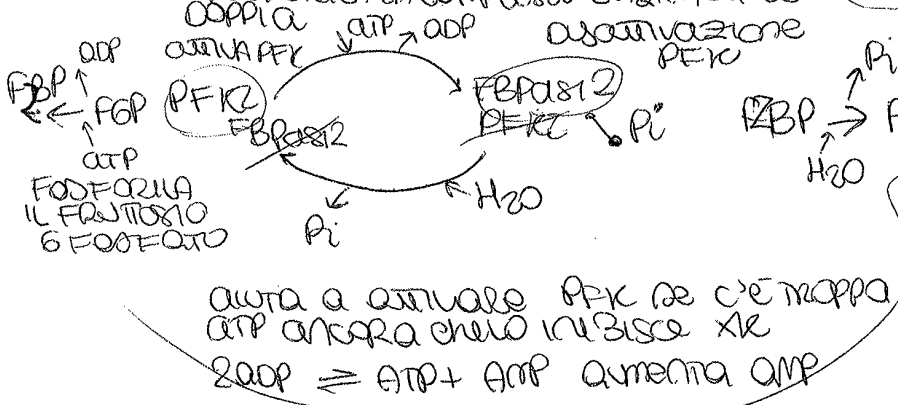 DOPPIA
ATTIVA PFK
ATP ADP
DISATTIVAZIONE
PFK
ADP
F6P
ATP
FOSFORILA
IL FRUTTOSIO
6 FOSFATO
PFK2
FBPasi2
FBPasi2
PFK2
Pi
H2O
Pi
Pi
H2O
AIUTA A ATTIVARE PFK SE C'È TROPPA
ATP ANCORA CHE LO INIBISCE XK
2ADP ⇌ ATP + AMP AUMENTA AMP